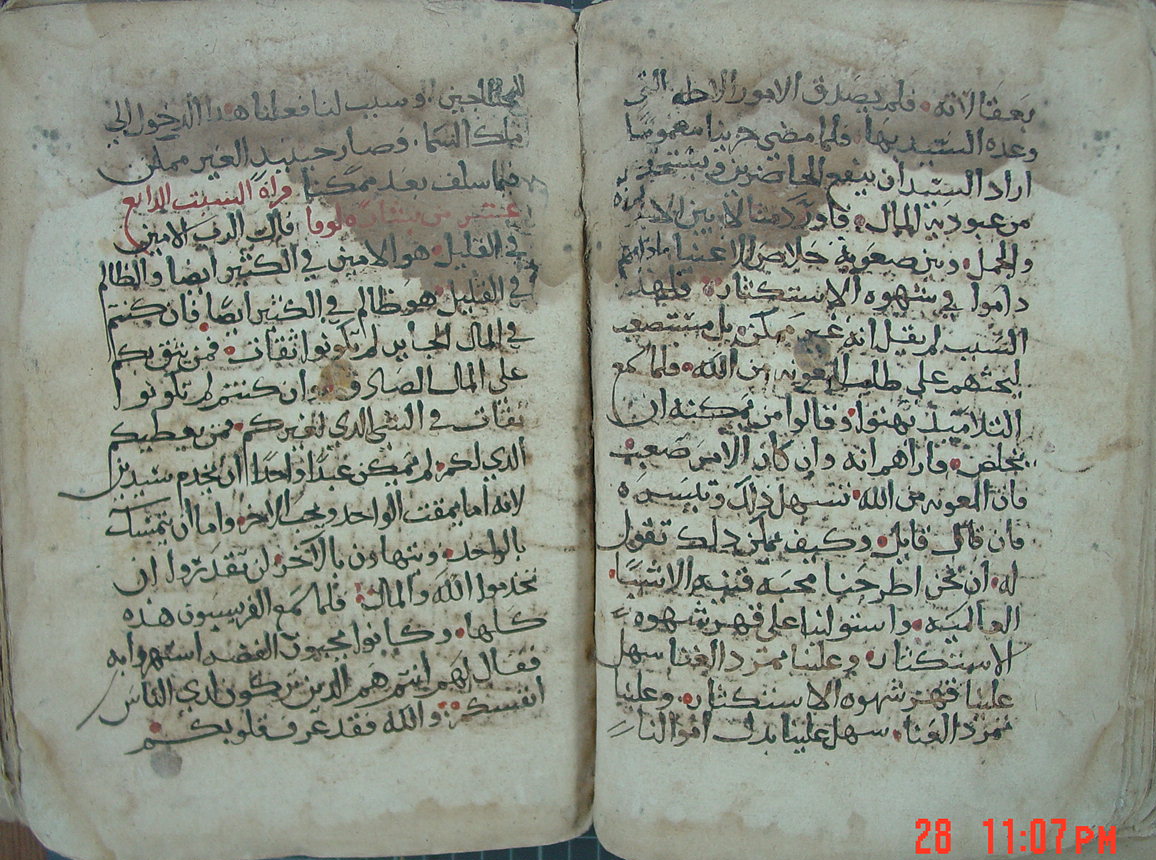 بعقالاته فلم يصدق الامور الاجله التي
وعده السيد بها فلما مضى حزينا مغموما
اراد السيد ان ينفع الحاضرين وينتحلهم
من عبودية المال فاورد مثالا بين الابرة
والجمل وبين صعوبة خلاص الاغنيا ماداموا
داموا في شهوه الاستكثار فلهذا
السبب لم يقل انه غير ممكن بل مستصعب
ليحثهم على طلب المعونه من الله فلما سمع
التلاميذ بهتوا وقالوا من يمكنه ان
يخلص فاراهم انه وان كان الامر صعب
فان المعونه من الله تسهل ذلك وتيسره
فان قال قايل وكيف يمكن ذلك تقول
له ان نحن اطرحنا محبه قنيه الاشيا
العالميه واستولنا على قهر شهوه
الاستكثار وعلينا بمرد الغنا سهل
علينا قهر شهوه الاستكثار وعلينا
بمرد الغنا سهل علينا بدل اموالنا
للمحتاجين وسبب لنا فعلنا هذا الدخول الى
ملك السما وصار حينيد الغير ممكن
فلما سلف بعد ممكنا قراة السبت الرابع
عشر من بشارة لوقا قال الرب الامين
في القليل هو الامين في الكثير ايضا والظالم
في القليل هو ظالم في الكثير ايضا فان كنتم
في المال الجاير لم تكونوا ثقات فمن يثق بكم
على المال الصادق وان كنتم لم تكونوا
ثقات في الشي الذي لغيركم فمن يعطيكم
الذي لكم لم يمكن عبدا واحدا ان يخدم سيدين
لانه اما يمقت الواحد ويحب الاخر واما ان يتمسك
بالواحد ويتهاون بالاخر لن تقدروا ان
تخدموا الله والمال فلما سمع الفريسيون هذه
كلها وكانوا محبون الفضه استهزوا به
فقال لهم انتم هم الذين تزكون لدي الناس
انفسكم والله فقد عرف قلوبكم
28 11:07 PM